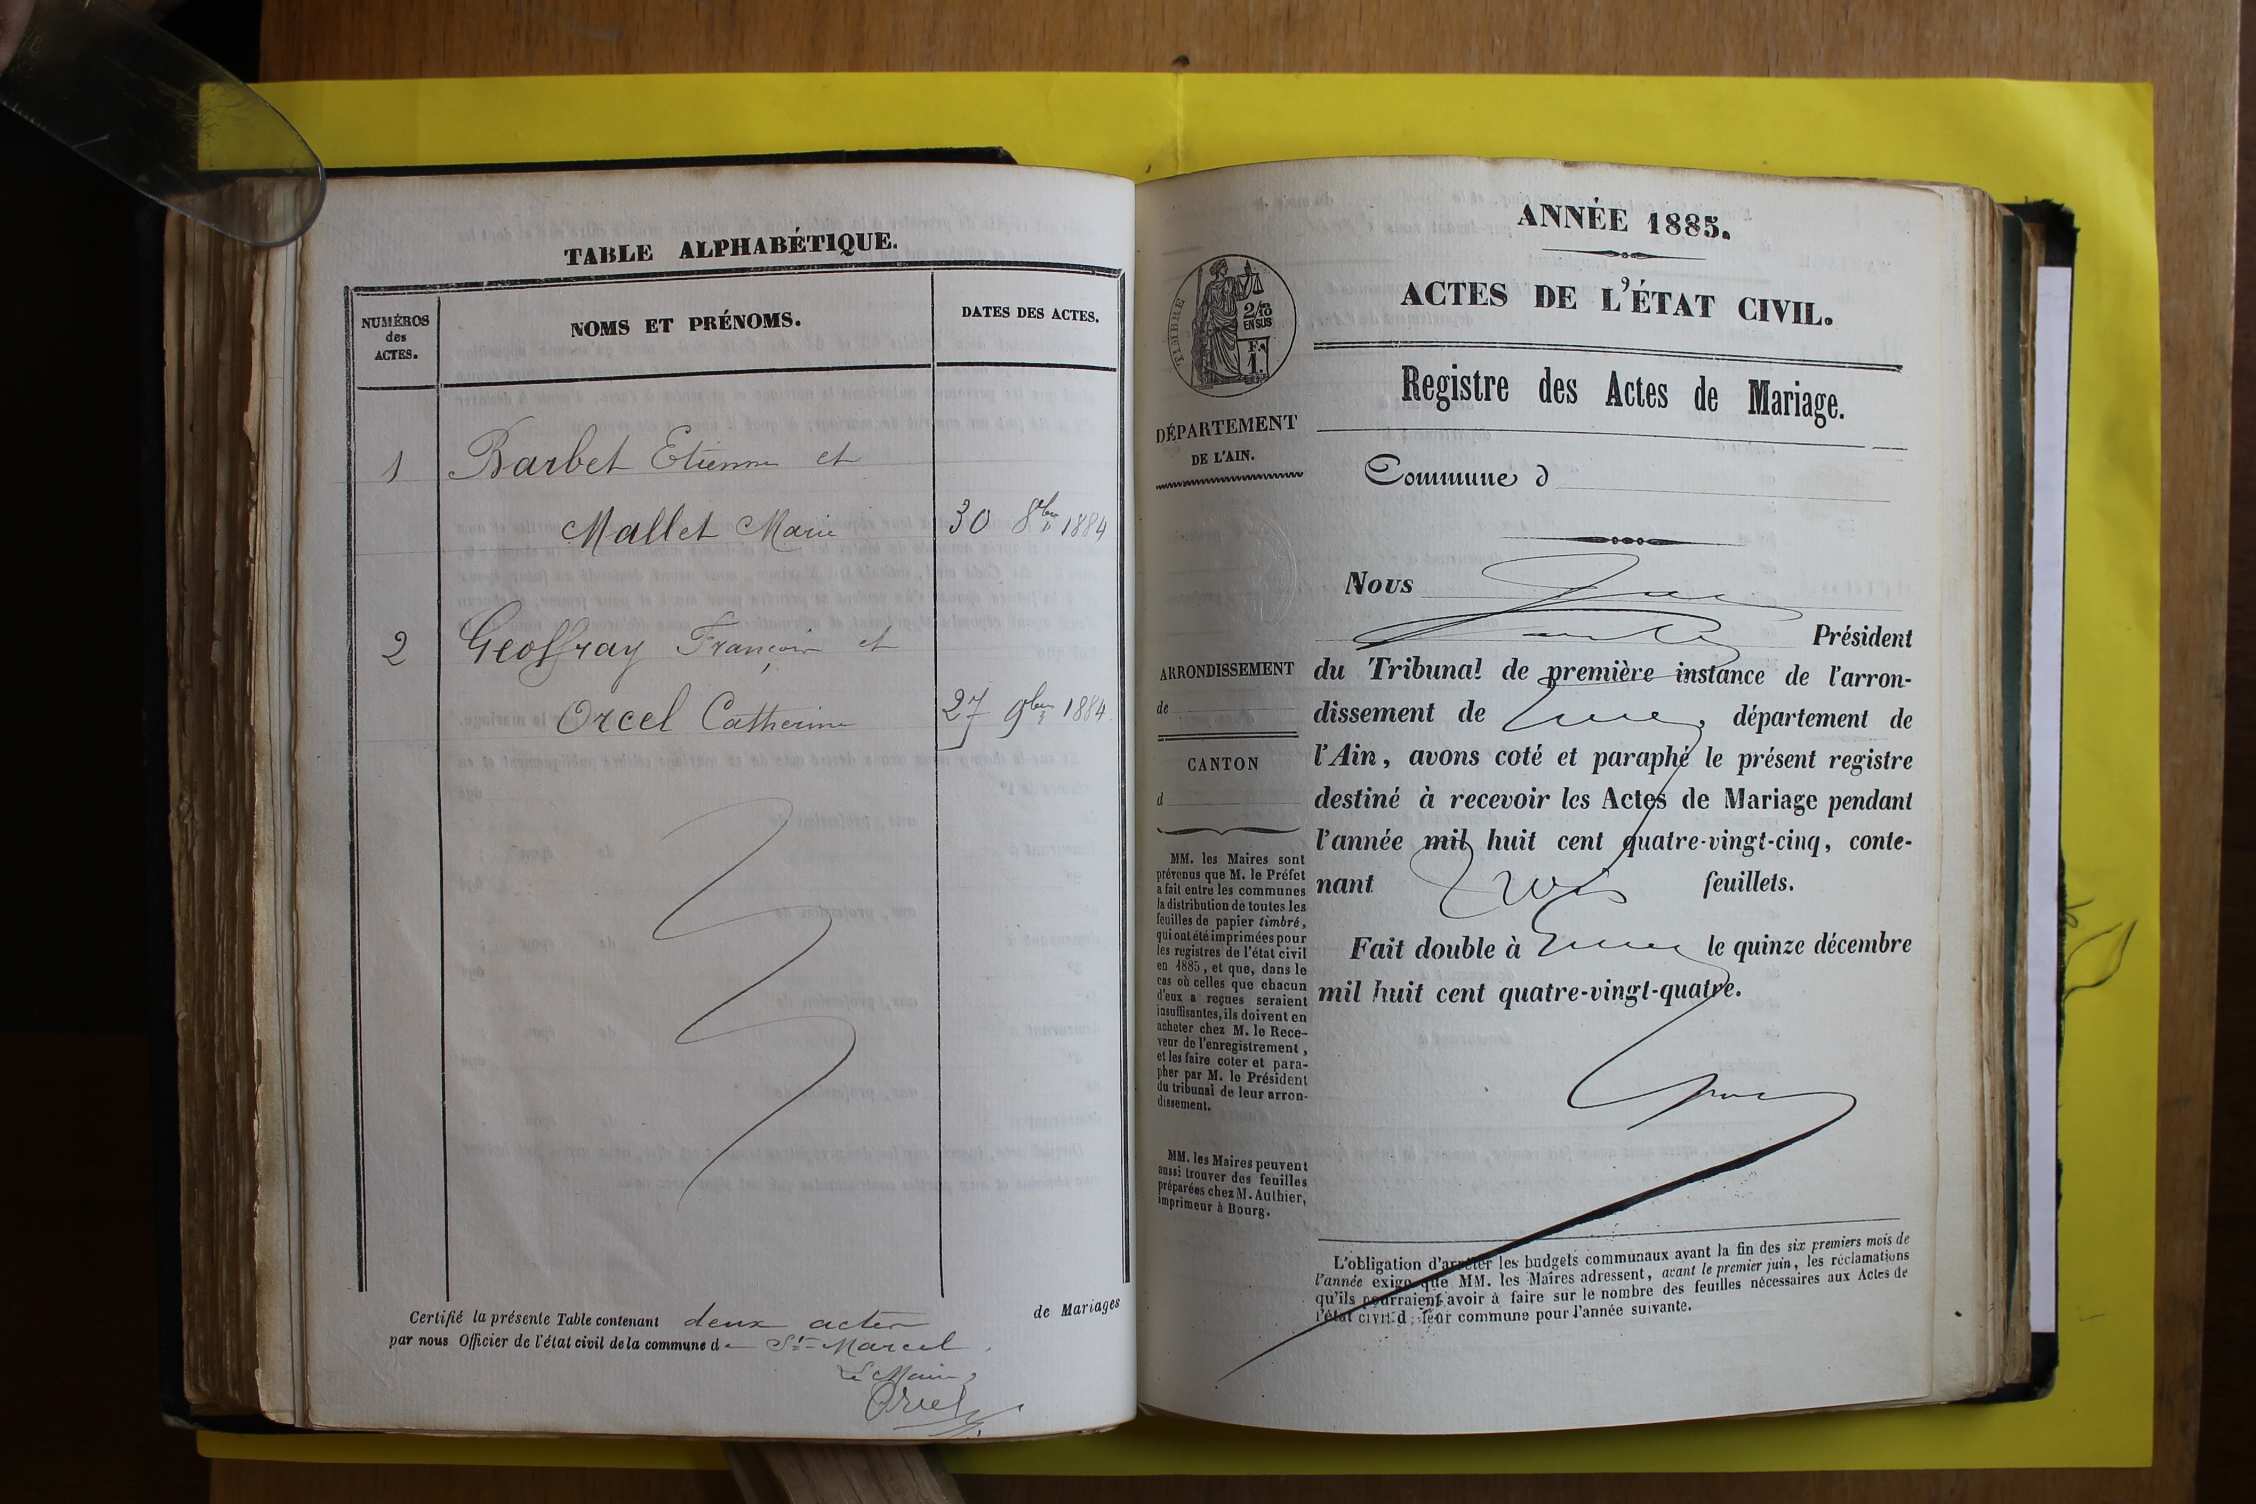 TABLE ALPHABÉTIQUE.
NUMÉROS
des
ACTES.
NOMS ET PRÉNOMS.
DATES DES ACTES.
1 Barbet Etienne et
Mallet Marie 30 8bre 1884
2 Geoffray François et
Orcel Catherine 27 9bre 1884
Certifié la présente Table contenant deux actes de Mariages
par nous Officier de l'état civil de la commune de St-Marcel
Le Maire,
Orcel
ANNÉE 1885.
ACTES DE L'ÉTAT CIVIL.
Registre des Actes de Mariage.
Commune d
TIMBRE
2/10
EN SUS
1.
DÉPARTEMENT
DE L'AIN.
ARRONDISSEMENT
de
CANTON
d
MM. les Maires sont
prévenus que M. le Préfet
a fait entre les communes
la distribution de toutes les
feuilles de papier timbré,
qui ont été imprimées pour
les registres de l'état civil
en 1885, et que, dans le
cas où celles que chacun
d'eux a reçues seraient
insuffisantes, ils doivent en
acheter chez M. le Rece-
veur de l'enregistrement,
et les faire coter et para-
pher par M. le Président
du tribunal de leur arron-
dissement.
MM. les Maires peuvent
aussi trouver des feuilles
préparées chez M. Authier,
imprimeur à Bourg.
Nous
Président
du Tribunal de première instance de l'arron-
dissement de département de
l'Ain, avons coté et paraphé le présent registre
destiné à recevoir les Actes de Mariage pendant
l'année mil huit cent quatre-vingt-cinq, conte-
nant trois feuillets.
Fait double à le quinze décembre
mil huit cent quatre-vingt-quatre.
L'obligation d'arrêter les budgets communaux avant la fin des six premiers mois de
l'année exige que MM. les Maires adressent, avant le premier juin, les réclamations
qu'ils pourraient avoir à faire sur le nombre des feuilles nécessaires aux Actes de
l'état civil d leur commune pour l'année suivante.